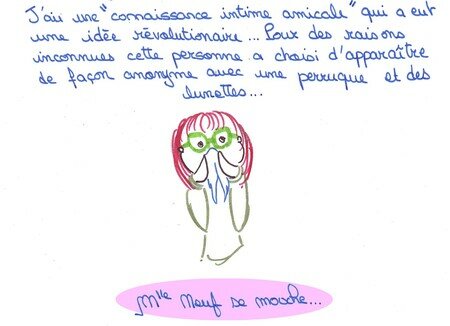 J'ai une "connaissance intime amicale" qui a eut
une idée révolutionaire... Pour des raisons
inconnues cette personne a choisi d'apparaître
de façon anonyme avec une perruque et des
lunettes...
Mlle Meuf se mouche...